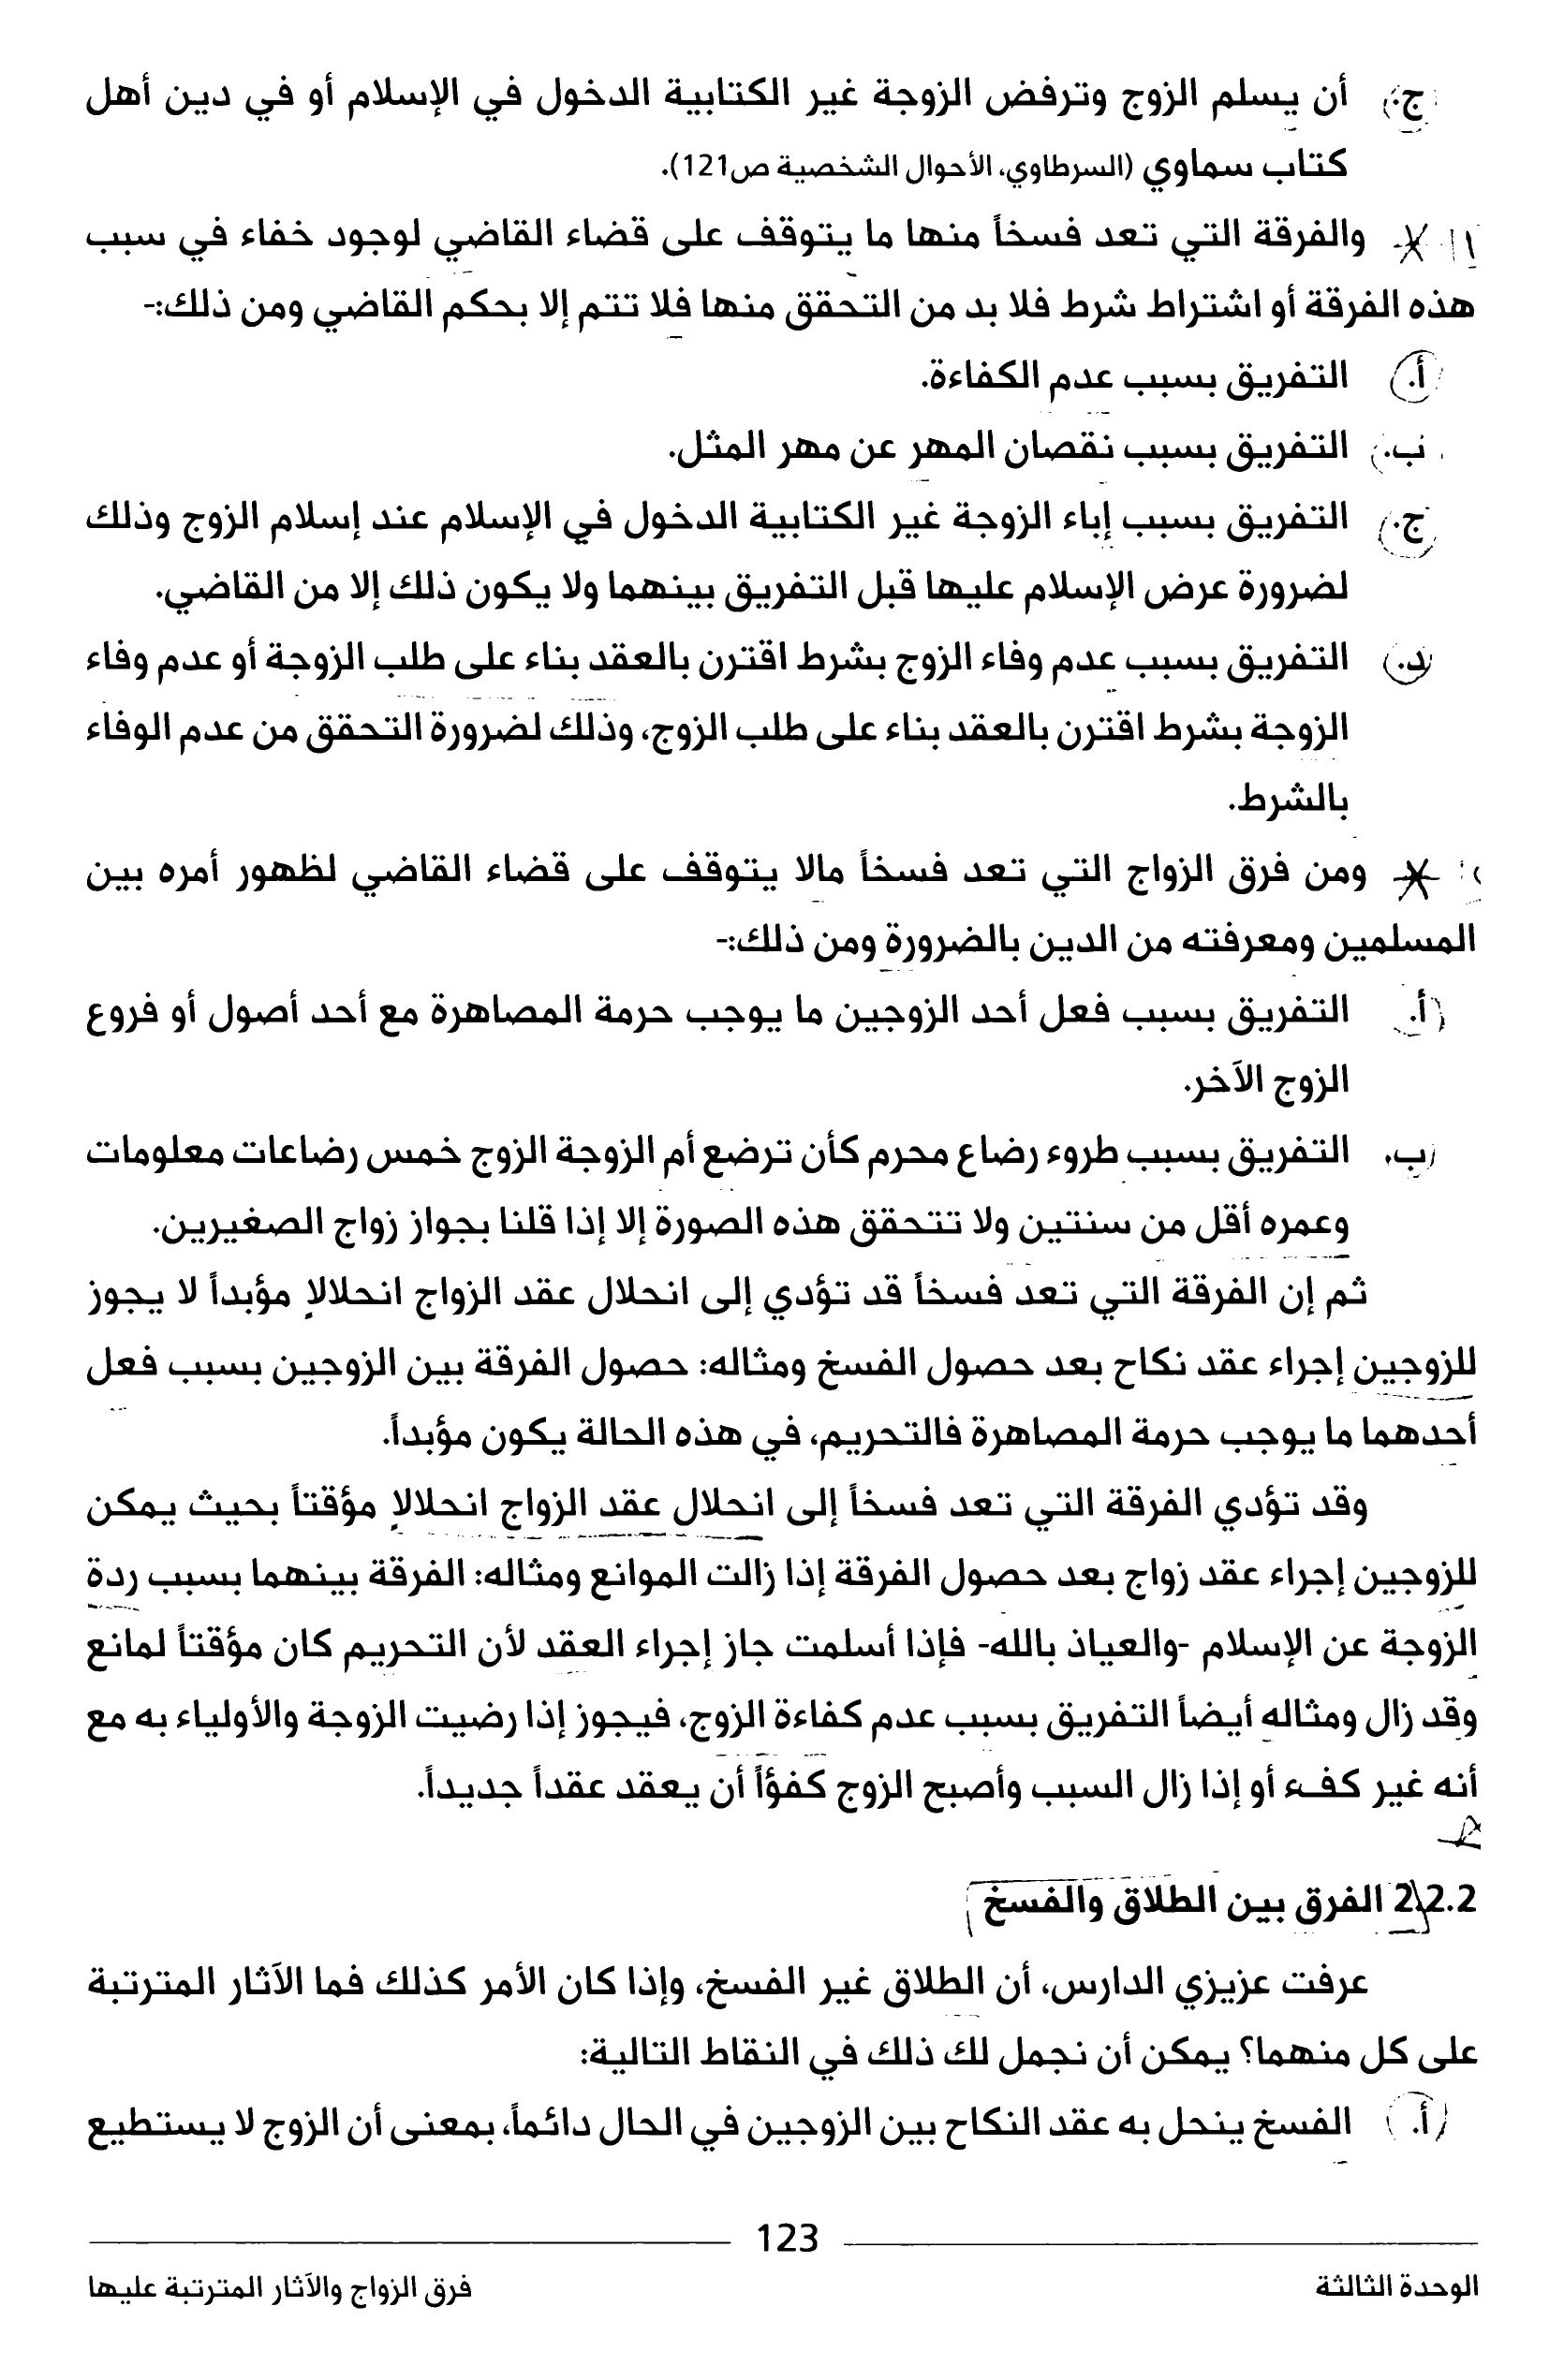 ج. أن يسلم الزوج وترفض الزوجة غير الكتابية الدخول في الإسلام أو في دين أهل
كتاب سماوي (السرطاوي، الأحوال الشخصية ص121).
والفرقة التي تعد فسخاً منها ما يتوقف على قضاء القاضي لوجود خفاء في سبب
هذه الفرقة أو اشتراط شرط فلا بد من التحقق منها فلا تتم إلا بحكم القاضي ومن ذلك:-
أ. التفريق بسبب عدم الكفاءة.
ب. التفريق بسبب نقصان المهر عن مهر المثل.
ج. التفريق بسبب إباء الزوجة غير الكتابية الدخول في الإسلام عند إسلام الزوج وذلك
لضرورة عرض الإسلام عليها قبل التفريق بينهما ولا يكون ذلك إلا من القاضي.
د. التفريق بسبب عدم وفاء الزوج بشرط اقترن بالعقد بناء على طلب الزوجة أو عدم وفاء
الزوجة بشرط اقترن بالعقد بناء على طلب الزوج، وذلك لضرورة التحقق من عدم الوفاء
بالشرط.
ومن فرق الزواج التي تعد فسخاً مالا يتوقف على قضاء القاضي لظهور أمره بين
المسلمين ومعرفته من الدين بالضرورة ومن ذلك:-
أ. التفريق بسبب فعل أحد الزوجين ما يوجب حرمة المصاهرة مع أحد أصول أو فروع
الزوج الآخر.
ب. التفريق بسبب طروء رضاع محرم كأن ترضع أم الزوجة الزوج خمس رضاعات معلومات
وعمره أقل من سنتين ولا تتحقق هذه الصورة إلا إذا قلنا بجواز زواج الصغيرين.
ثم إن الفرقة التي تعد فسخاً قد تؤدي إلى انحلال عقد الزواج انحلالا مؤبداً لا يجوز
للزوجين إجراء عقد نكاح بعد حصول الفسخ ومثاله: حصول الفرقة بين الزوجين بسبب فعل
أحدهما ما يوجب حرمة المصاهرة فالتحريم، في هذه الحالة يكون مؤبداً.
وقد تؤدي الفرقة التي تعد فسخاً إلى انحلال عقد الزواج انحلالا مؤقتاً بحيث يمكن
للزوجين إجراء عقد زواج بعد حصول الفرقة إذا زالت الموانع ومثاله: الفرقة بينهما بسبب ردة
الزوجة عن الإسلام -والعياذ بالله- فإذا أسلمت جاز إجراء العقد لأن التحريم كان مؤقتاً لمانع
وقد زال ومثاله أيضاً التفريق بسبب عدم كفاءة الزوج، فيجوز إذا رضيت الزوجة والأولياء به مع
أنه غير كفء أو إذا زال السبب وأصبح الزوج كفؤاً أن يعقد عقداً جديداً.
2.2.2 الفرق بين الطلاق والفسخ
عرفت عزيزي الدارس، أن الطلاق غير الفسخ، وإذا كان الأمر كذلك فما الآثار المترتبة
على كل منهما؟ يمكن أن نجمل لك ذلك في النقاط التالية:
أ. الفسخ ينحل به عقد النكاح بين الزوجين في الحال دائماً، بمعنى أن الزوج لا يستطيع
123
الوحدة الثالثة
فرق الزواج والآثار المترتبة عليها